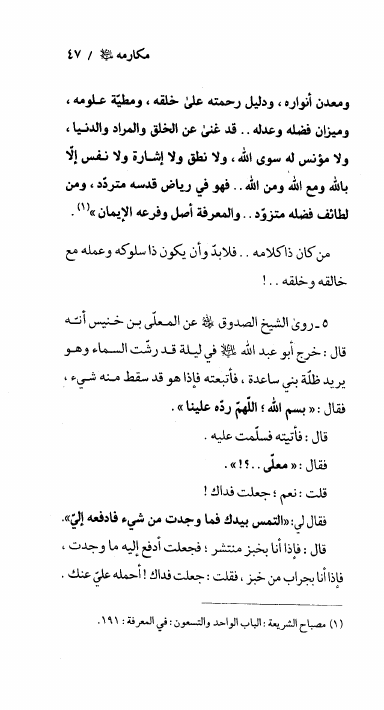 مكارمه ﷺ / ٤٧
ومعدن أنواره ، ودليل رحمته على خلقه ، ومطيّة علومه ،
وميزان فضله وعدله .. قد غنىٰ عن الخلق والمراد والدنيا ،
ولا مؤنس له سوى الله ، ولا نطق ولا إشارة ولا نفس إلّا
بالله ومع الله ومن الله .. فهو في رياض قدسه متردّد ، ومن
لطائف فضله متزوّد .. والمعرفة أصل وفرعه الإيمان »(١) .
من كان ذا كلامه .. فلابدّ وأن يكون ذا سلوكه وعمله مع
خالقه وخلقه .. !
٥ ـ روىٰ الشيخ الصدوق ﷺ عن المعلّى بن خنيس أنّه
قال : خرج أبو عبد الله ﷺ في ليلة قد رشّت السماء وهو
يريد ظلّة بني ساعدة ، فأتبعته فإذا هو قد سقط منه شيء ،
فقال : « بسم الله ؛ اللهمّ ردّه علينا » .
قال : فأتيته فسلّمت عليه .
فقال : « معلّى ..؟! » .
قلت : نعم ؛ جعلت فداك !
فقال لي : «التمس بيدك فما وجدت من شيء فادفعه إليّ» .
قال : فإذا أنا بخبز منتشر ؛ فجعلت أدفع إليه ما وجدت ،
فإذا أنا بجراب من خبز ، فقلت : جعلت فداك ! أحمله عليّ عنك .
(١) مصباح الشريعة : الباب الواحد والتسعون : في المعرفة : ١٩١ .